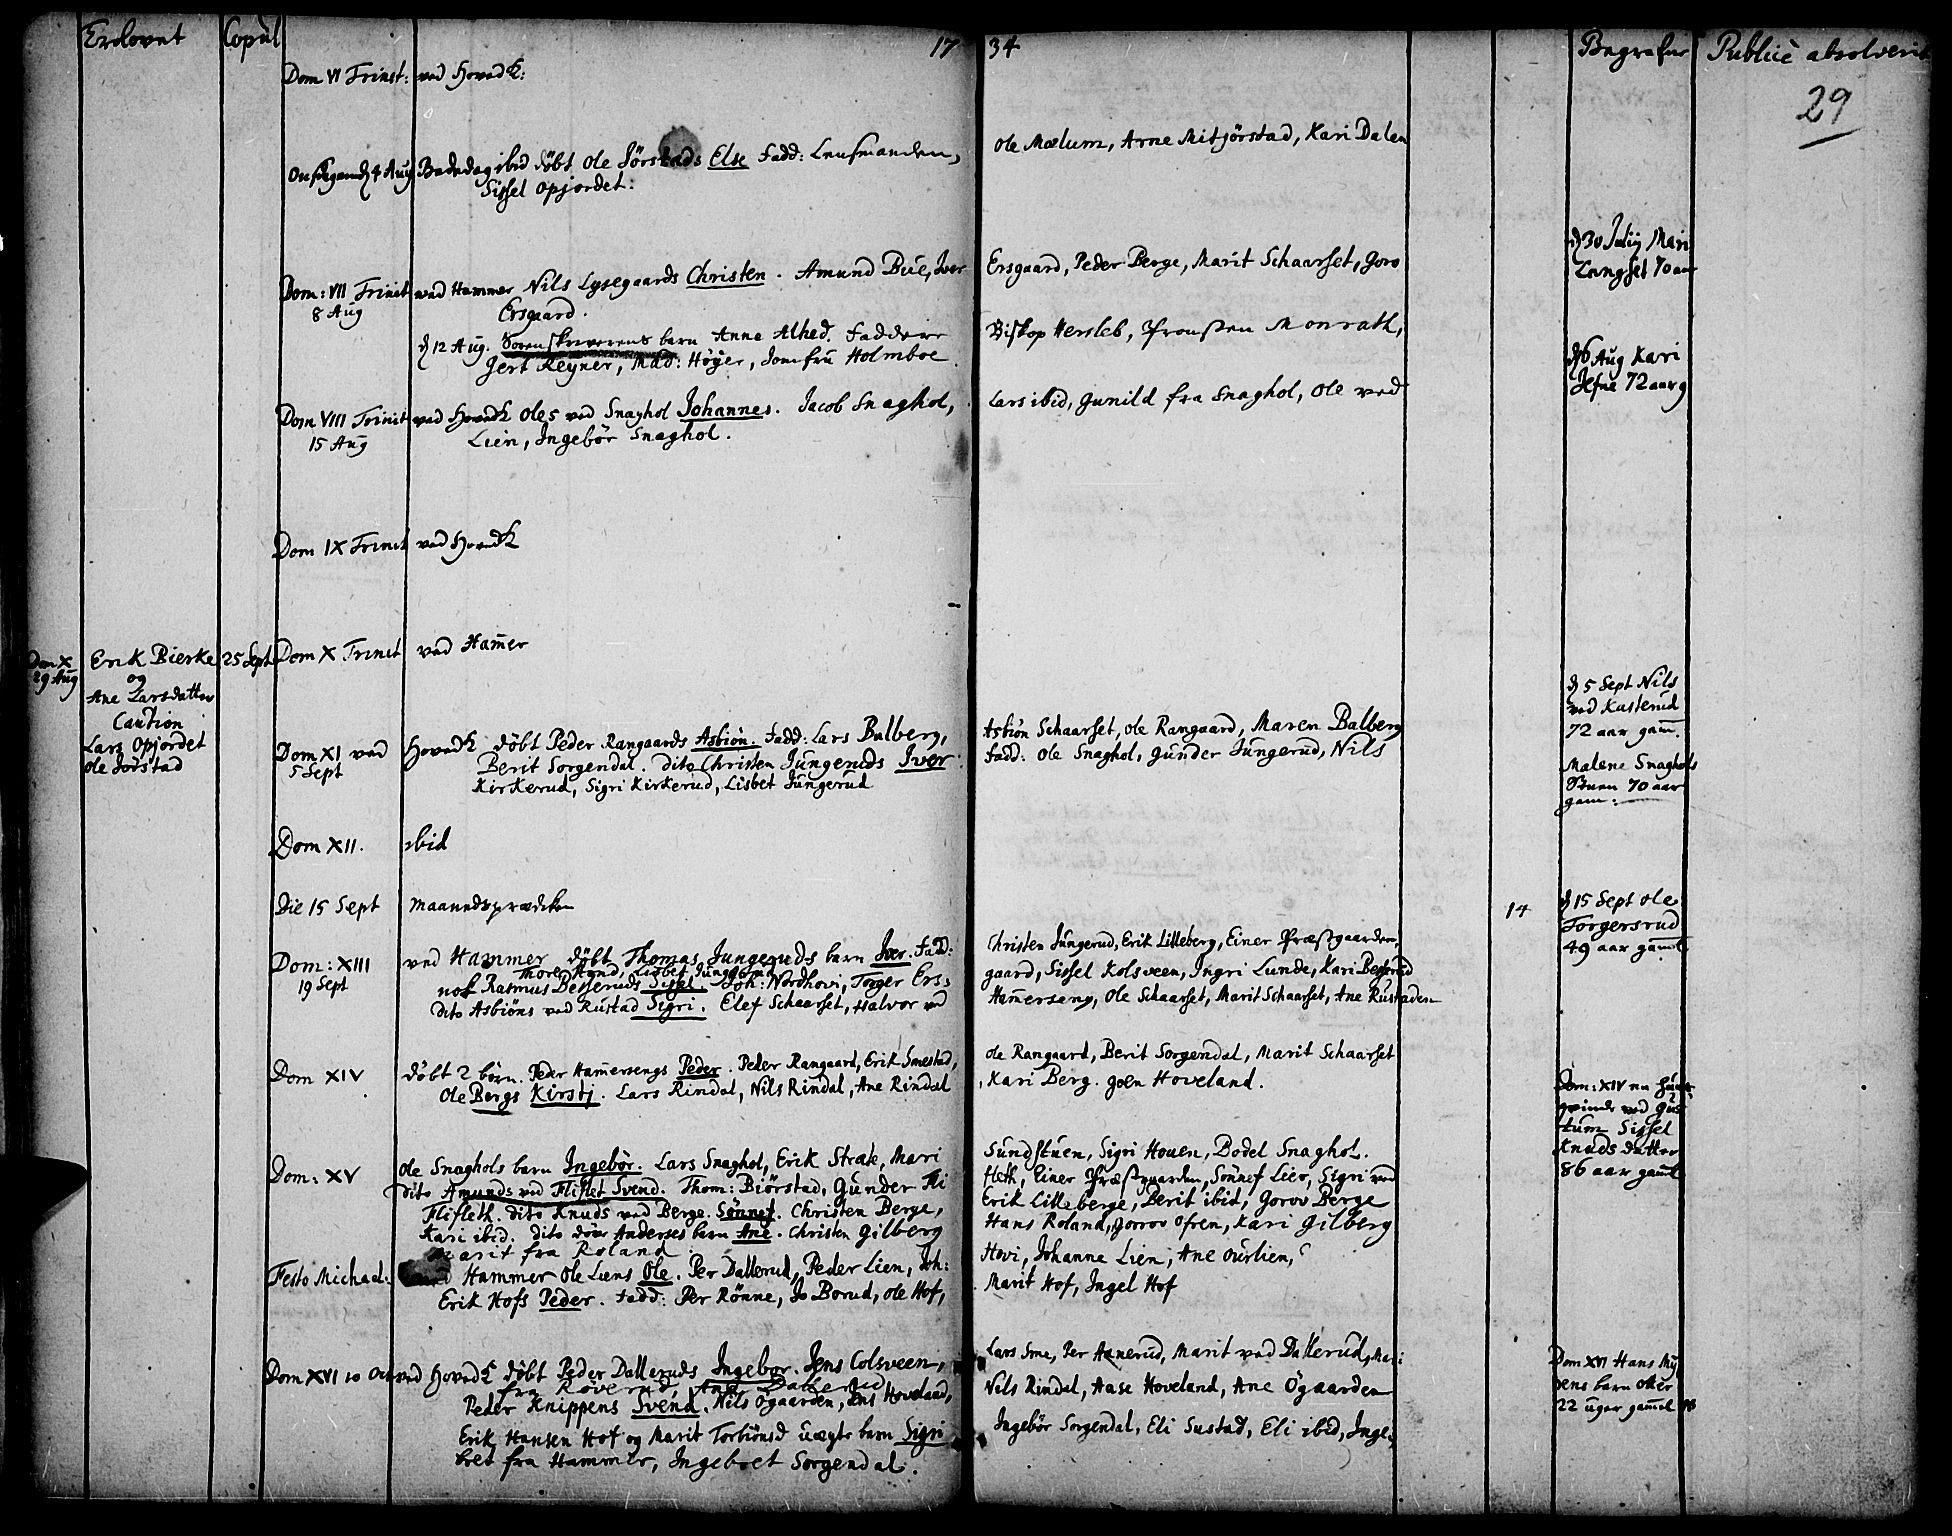 Erelovet
Copul
17
34
Begrafne
Publicè absolverit
29
Dom VI Trinit: ved Hovedk:
Onsdagen d 4 Aug Bededag ibid döbt Ole Jörstads Else Fadd: Lensmanden,
Ole Mælum, Arne Mitjörstad, Kari Dalen
Sissel Opjordet.
d 30 Julij Mari
Langset 70 aar
Dom: VII Trinit ved Hammer Nils Lysegaards Christen. Amund Bue, Iver
Ersgaard, Peder Berge, Marit Schaarset, Joro
8 Aug
Ersgaard.
d 12 Aug. Sorenskriverens barn Anne Alhed. Faddere
Biskop Hersleb, Prousten Monrath,
Jert Reyner, Mad: Höyer, Jomfru Holmboe
d 6 Aug Kari
Jefne 72 aar g
Dom VIII Trinit ved Hovedk Oles ved Snaghol Johannes. Jacob Snaghol,
Lars ibid, Gunild fra Snaghol, Ole ved
15 Aug
Lien, Ingebör Snaghol.
Dom IX Trinit ved Hovedk
Dom X
29 Aug
Erik Bierke
og
Ane Larsdatter
Caution
Lars Opjordet
Ole Jörstad
25 Sept
Dom X Trinit ved Hamer
d 5 Sept Nils
ved Kasterud
72 aar gam.
Malene Snaghols
Stuen 70 aar
gam:
Dom XI ved Hovedk döbt Peder Rangaards Asbiön. Fadd: Lars Balberg,
Asbiön Schaarset, Ole Rangaard, Maren Balberg
5 Sept
Berit Sorgendal. Dito Christen Jungeruds Iver.
Fadd: Ole Snaghol, Gunder Jungerud, Nils
Kirkerud, Sigri Kirkerud, Lisbet Jungerud
Dom XII. ibid
Die 15 Sept Maanedsprædiken
14
d 15 Sept Ole
Torgersrud
49 aar gaml
Dom: XIII ved Hammer döbt Thomas Jungeruds barn Iver. Fad:
Christen Jungerud, Erik Lilleberg, Einer Præstgaarden,
19 Sept
nok Rasmus Besseruds Sissel. Joh: Nordhovi, Torger Ers:
gaard, Sissel Kolsveen, Ingri Lunde, Kari Besserud
dito Asbiöns ved Rustad Sigri. Elef Schaarset, Halvor ved
Hamerseng, Ole Schaarset, Marit Schaarset, Ane Rustaden
Dom XIV döbt 2 börn. Peder Hamersengs Peder. Peder Rangaard, Erik Smestad,
Ole Rangaard, Berit Sorgendal, Marit Schaarset
Ole Bergs Kirstj. Lars Rindal, Nils Rindal, Ane Rindal
, Kari Berg. Goen Hoveland.
Sissel
Knuds datter
86 aar gaml
Dom: XV Ole Snaghols barn Ingebör. Lars Snaghol, Erik Strate, Mari
Sundstuen, Sigri Houen, Bodel Snaghol.
dito Amunds ved Fliflet Svend. Thom: Biörstad, Gunder Fli
fleth, Einer Præstgaarden, Sönnef Lier, Sigri ved
Flifleth. dito Knuds ved Berge. Sönnef. Christen Berge,
Erik Lilleberge, Berit ibid, Gorov Berge
Kari ibid. dito döve Anderses barn Ane. Christen Gilberg
Hans Roland, Gorov Ofren, Kari Gilberg
Marit fra Roland
Festo Michael: ved Hammer Ole Liens Ole. Per Dallerud, Peder Lien, Joh:
Hovi, Johanne Lien, Ane Ourlien,
Erik Hofs Peder. Fadd: Per Rönne, Jo Borud, Ole Hof,
Marit Hof, Ingel Hof
Dom XVI 10 Oct ved Hovedk döbt Peder Dalleruds Ingebor. Jens Colsveen,
Lars Sme, Per Aanerud, Marit ved Dallerud, Mari
fra Röverud, Ane Dallerud
Peder Knippens Svend. Nils Ögaarden, Jens Hoveland,
Nils Rindal, Aase Hoveland, Ane Ögaarden
Erik Hansen Hof og Marit Torbiönsd uægte barn Sigri
Ingebör Sorgendal, Eli Sustad, Eli ibid, Inge:
bret fra Hammer, Ingebret Sorgendal.
Dom XVI Hans My
rens barn
22 uger gamel